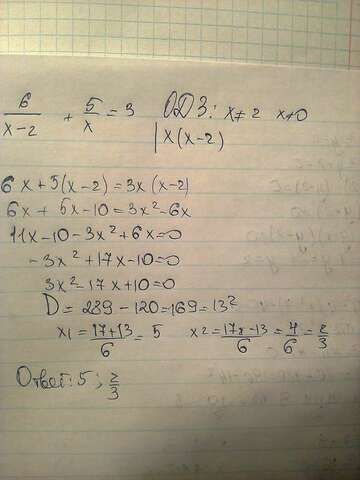 6/(x-2) + 5/x = 3 ОДЗ: x≠2 x≠0
| x(x-2)
6x+5(x-2)=3x(x-2)
6x+5x-10=3x²-6x
11x-10-3x²+6x=0
-3x²+17x-10=0
3x²-17x+10=0
D=289-120=169=13²
x1=(17+13)/6=5 x2=(17-13)/6=4/6=2/3
Ответ: 5; 2/3